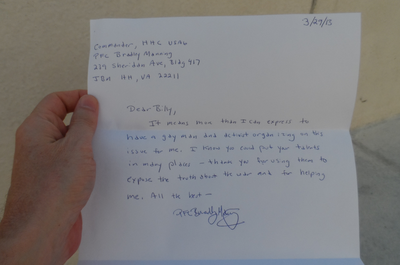 3/27/13
Commander, HHC USAG
PFC Bradley Manning
239 Sheridan Ave, Bldg 417
JBM-HH, VA 22211
Dear Billy,
It means more than I can express to
have a gay man and activist organizing on this
issue for me. I know you could put your talents
in many places – thank you for using them to
expose the truth about the war and for helping
me. All the best –
PFC Bradley Manning